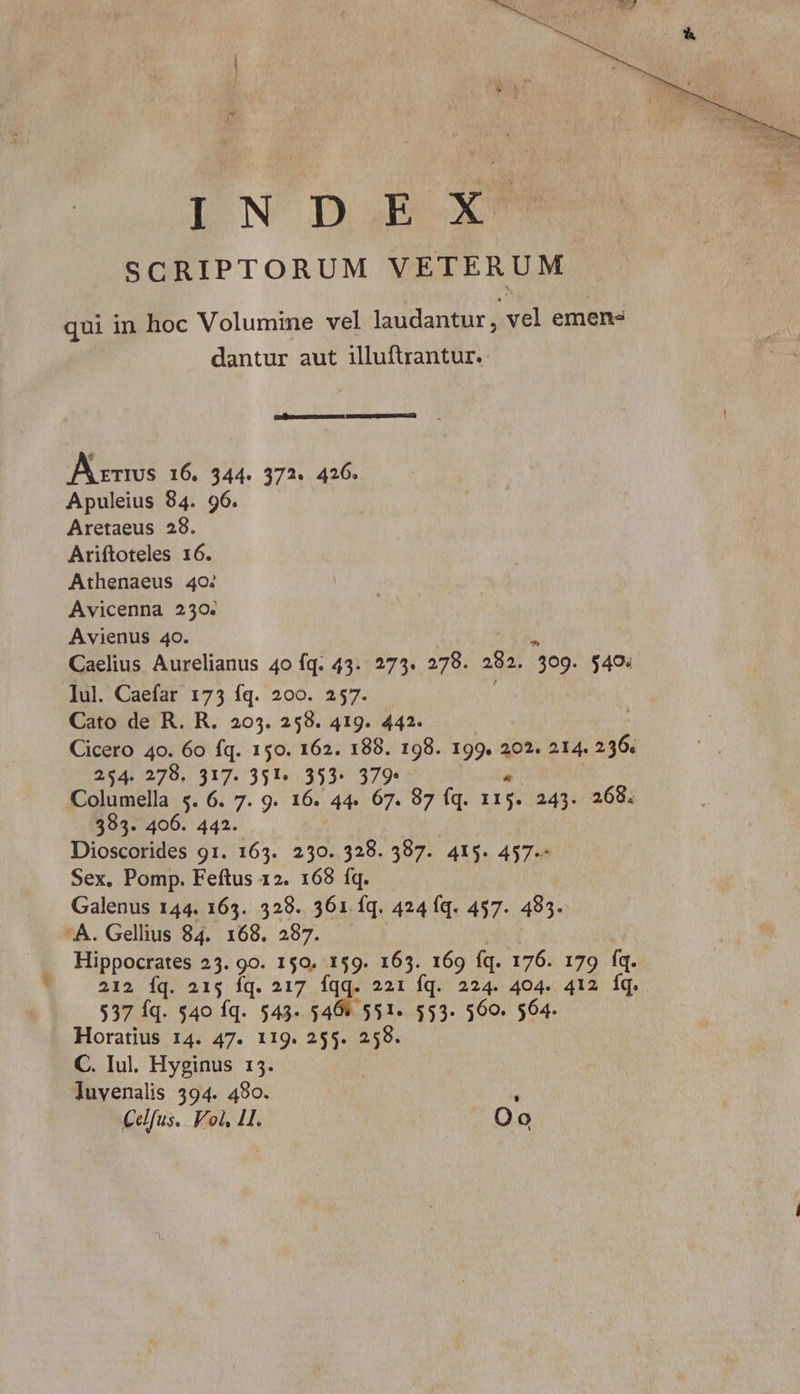 INDEX
SCRIPTORUM VETERUM
qui in hoc Volumine vel laudantur, vel emen-
dantur aut illuſtrantur.
AETIUS 16. 344. 372. 426.
Apuleius 84. 96.
Aretaeus 28.
Ariſtoteles 16.
Athenaeus 40.
Avicenna 230.
Avienus 40.
Caelius Aurelianus 40 ſq. 43. 273. 278. 282. 309. 540.
Iul. Caeſar 173 ſq. 200. 257.
Cato de R. R. 203. 258. 419. 442.
Cicero 40. 60 ſq. 150. 162. 188. 198. 199. 202. 214. 236.
254. 278. 317. 351. 353. 379.
Columella 5. 6. 7. 9. 16. 44. 67. 87 ſq. 115. 243. 268.
383. 406. 442.
Dioscorides 91. 163. 230. 328. 387. 415. 457.
Sex. Pomp. Feſtus 12. 168 ſq.
Galenus 144. 163. 328. 361 ſq. 424 ſq. 457. 483.
A. Gellius 84. 168. 287.
Hippocrates 23. 90. 150. 159. 163. 169 ſq. 176. 179 ſq.
212 ſq. 215 ſq. 217 ſqq. 221 ſq. 224. 404. 412 ſq.
537 ſq. 540 ſq. 543. 546. 551. 553. 560. 564.
Horatius 14. 47. 119. 255. 258.
C. Iul. Hyginus 13.
Iuvenalis 394. 480.
Celſus. Vol. II. Oo